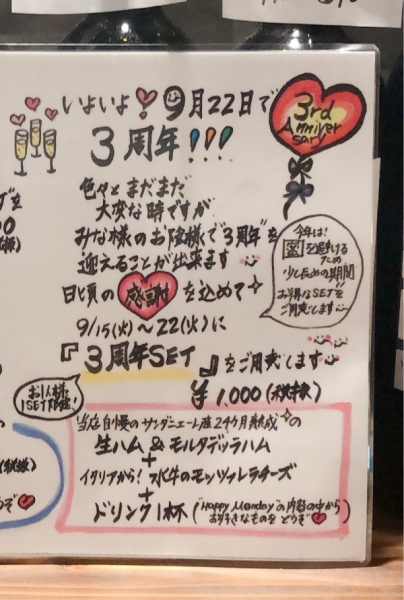 いよいよ 9月22日で
3周年!!!
3rd
Anniver
sary
色々とまだまだ
大変な時ですが
みな様のお陰様で"3周年"を
迎えることが出来ます
日頃の感謝を込めて
9/15(火)～22(火)に
『3周年SET』をご用意します
今年は!
密を避ける
ため
少し長めの期間
お得なSETを
ご用意します
お1人様
1SET限定!
¥1,000(税抜)
当店自慢のサンダニエーレ産24ヶ月熟成の
生ハム & モルタデッラハム
+
イタリアから! 水牛のモッツァレラチーズ
+
ドリンク1杯("Happy Monday"の内容の中から
お好きなものをどうぞ)